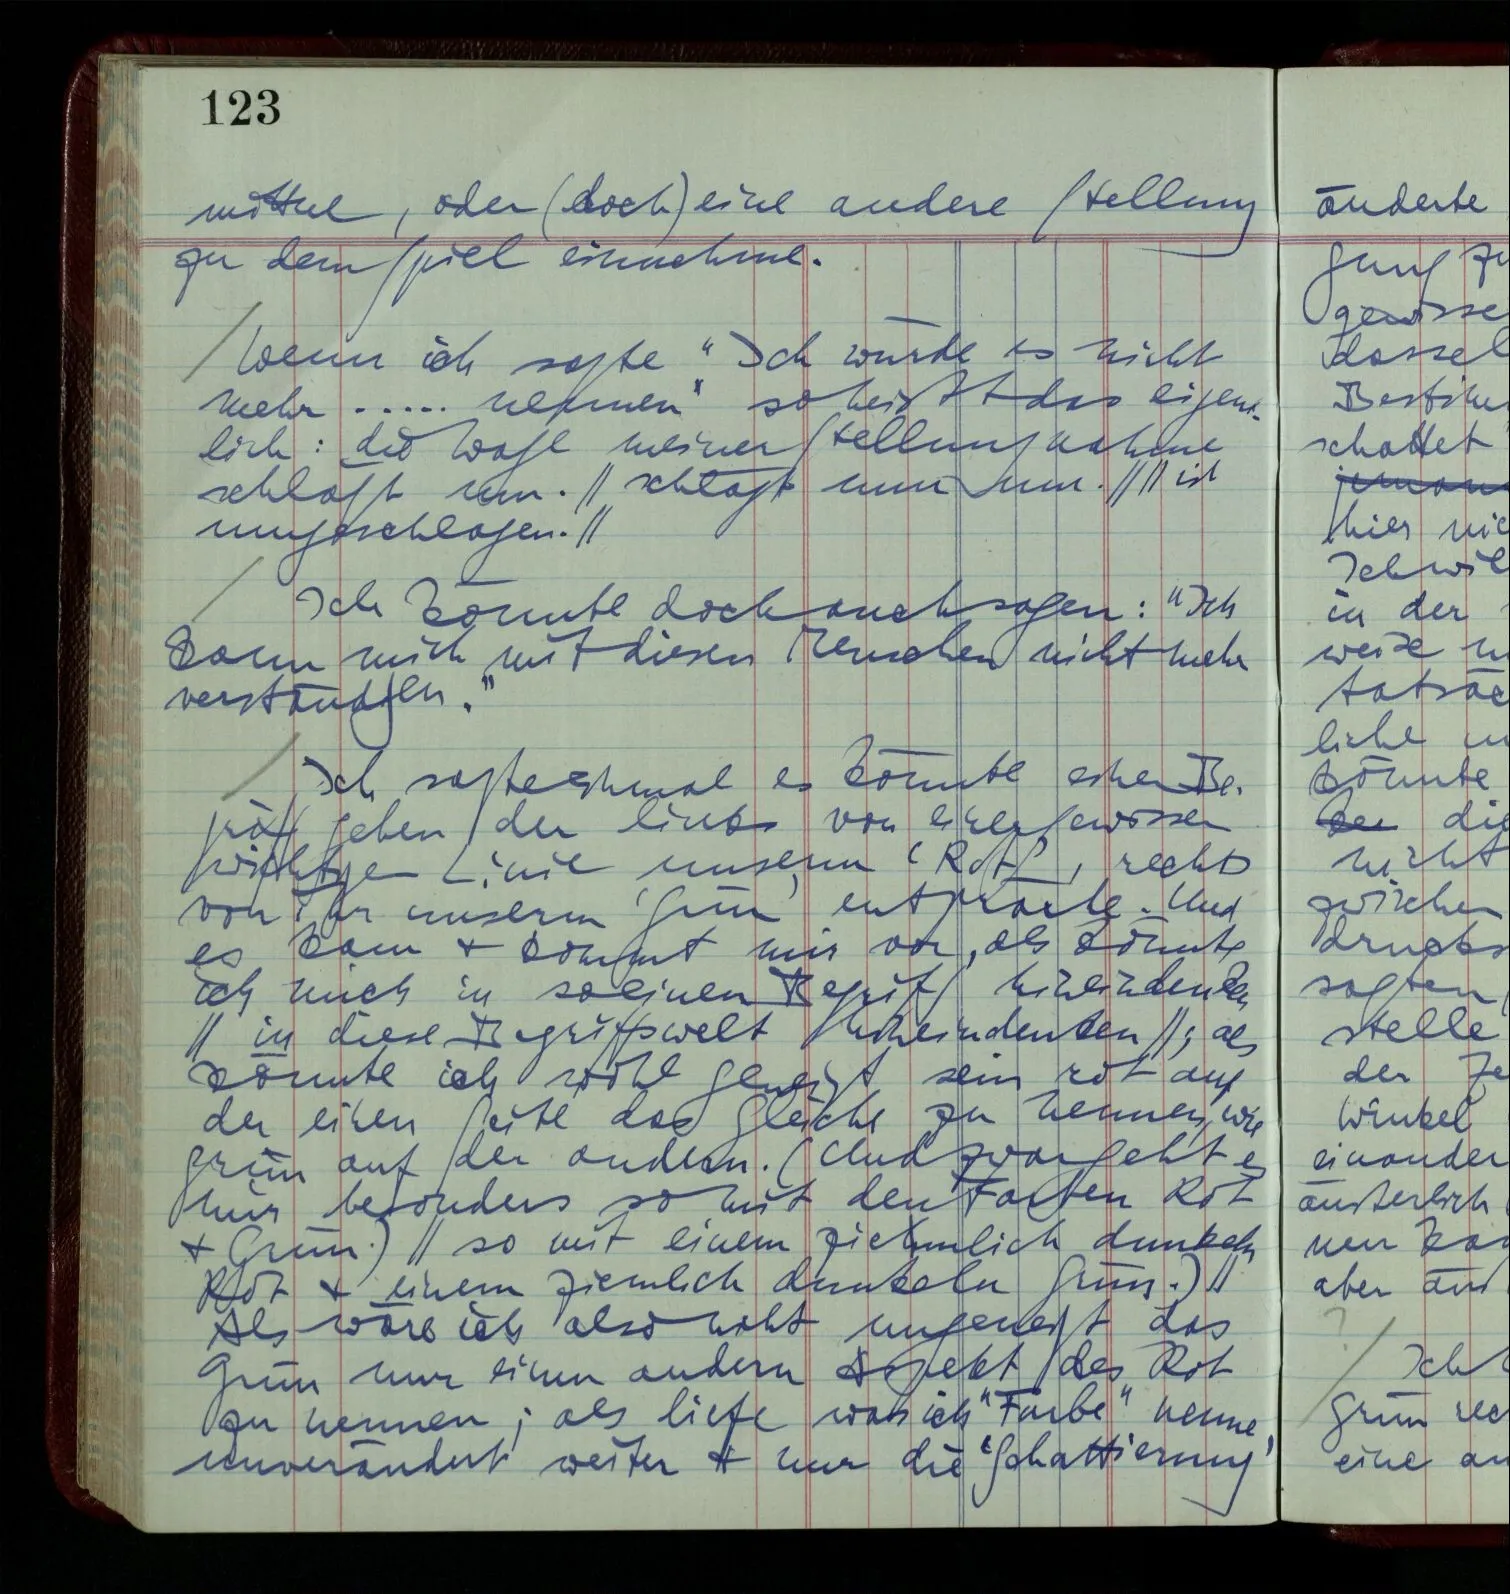 123
mittel, oder (doch) eine andere Stellung
zu dem Spiel einnehme.
Wenn ich sagte “Ich würde es nicht
mehr ..... nennen” so heißt das eigent-
lich: die Wage meiner Stellungnahme
schlägt um. // schlägt nun um. // // ist
umgeschlagen. //
Ich könnte doch auch sagen: “Ich
kann mich mit diesen Menschen nicht mehr
verständigen.”
Ich sagte einmal es könnte einen Be-
griff geben der links von einer gewissen
wichtigen Linie unserm ‘Rot’, rechts
von ihr unserm ‘Grün’ entspräche. Und
es kam & kommt mir vor, als könnte
ich mich in so einen Begriff hineindenken
// in diese Begriffswelt hineindenken //; als
könnte ich wohl geneigt sein rot auf
der einen Seite das Gleiche zu nennen, wie
grün auf der andern. (Und zwar geht es
mir besonders so mit den Farben Rot
& Grün.) // so mit einem ziemlich dunkeln
Rot & einem ziemlich dunkeln Grün.) //
Als wäre ich also nicht ungeneigt das
Grün nur einen andern Aspekt des Rot
zu nennen; als liefe was ich “Farbe” nenne
unverändert weiter & nur die ‘Schattierung’
änderte
gung
gewisse
schattet
hier
Ich
in der
weise
liche
könnte
die
nicht
zwischen
Drucks
sagten
stelle
der
Winkel
einander
äusserlich
nen
aber
Ich
Grün
eine